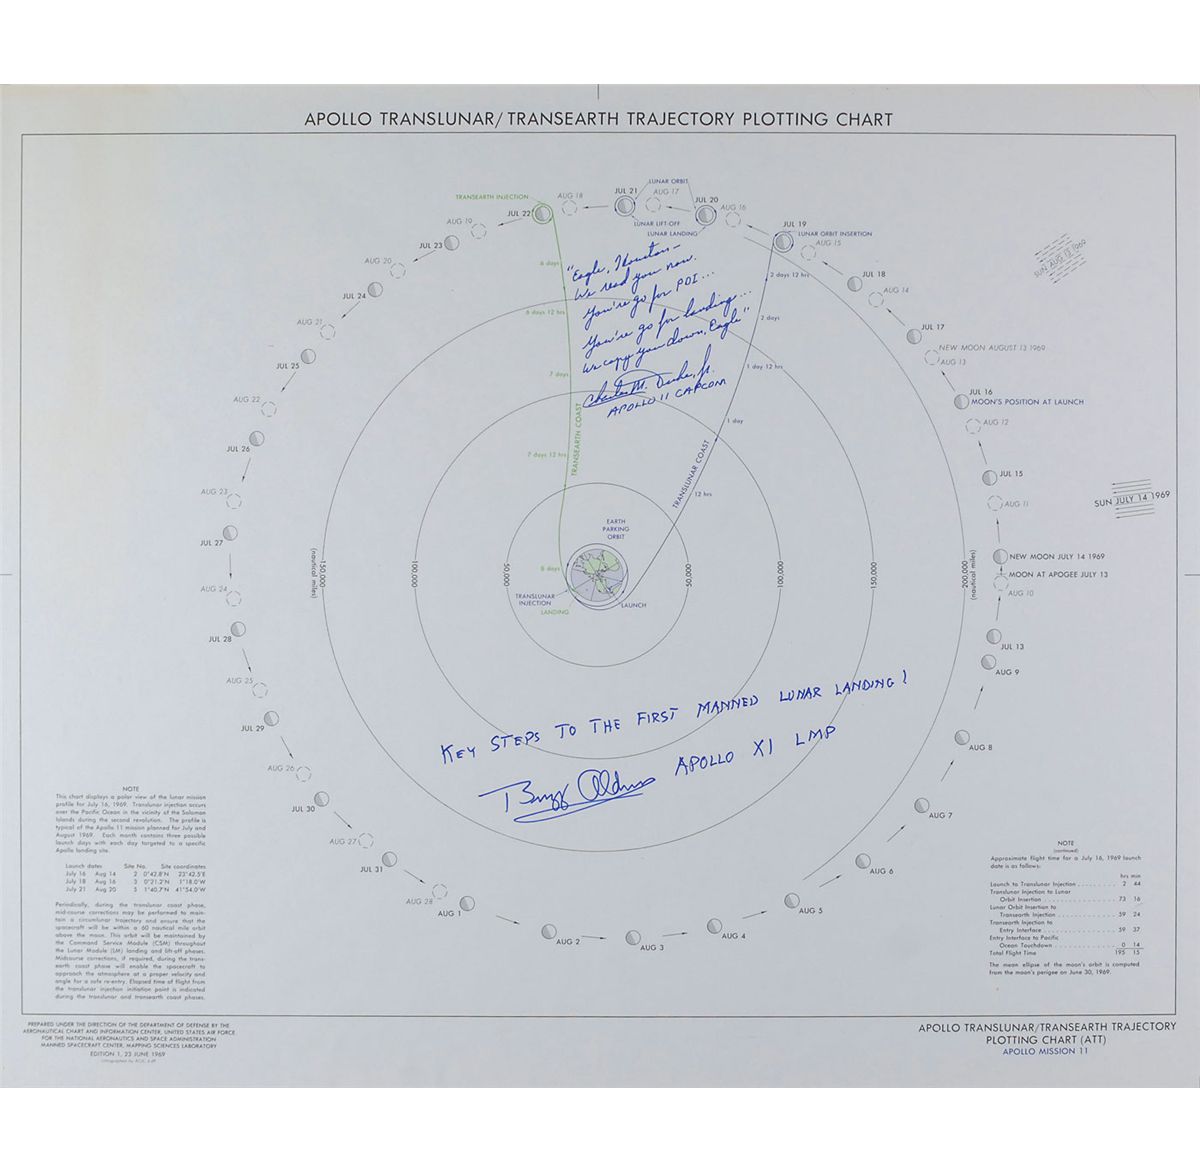 APOLLO TRANSLUNAR/TRANSEARTH TRAJECTORY PLOTTING CHART
TRANSEARTH INJECTION
JUL 22
AUG 18
JUL 21
LUNAR ORBIT
AUG 17
JUL 20
AUG 16
LUNAR LIFT-OFF
LUNAR LANDING
JUL 19
LUNAR ORBIT INSERTION
AUG 15
AUG 19
JUL 23
AUG 20
JUL 24
AUG 21
JUL 25
AUG 22
JUL 26
AUG 23
JUL 27
AUG 24
JUL 28
AUG 25
JUL 29
AUG 26
JUL 30
AUG 27
JUL 31
AUG 28
AUG 1
AUG 2
AUG 3
AUG 4
AUG 5
AUG 6
AUG 7
AUG 8
AUG 9
JUL 13
AUG 10
MOON AT APOGEE JULY 13
NEW MOON JULY 14 1969
AUG 11
JUL 15
AUG 12
MOON'S POSITION AT LAUNCH
JUL 16
AUG 13
NEW MOON AUGUST 13 1969
JUL 17
AUG 14
JUL 18
SUN AUG 13 1969
SUN JULY 14 1969
6 days
6 days 12 hrs
7 days
7 days 12 hrs
8 days
TRANSEARTH COAST
2 days 12 hrs
2 days
1 day 12 hrs
1 day
12 hrs
TRANSLUNAR COAST
"Eagle, Houston—
We read you now.
You're go for PDI...
You're go for landing...
We copy you down, Eagle"
Charles M. Duke, Jr.
APOLLO 11 CAPCOM
EARTH
PARKING
ORBIT
TRANSLUNAR
INJECTION
LANDING
LAUNCH
(nautical miles)
150,000
100,000
50,000
50,000
100,000
150,000
200,000
(nautical miles)
KEY STEPS TO THE FIRST MANNED LUNAR LANDING!
Buzz Aldrin APOLLO XI LMP
NOTE
This chart displays a polar view of the lunar mission
profile for July 16, 1969. Translunar injection occurs
over the Pacific Ocean in the vicinity of the Solomon
Islands during the second revolution. The profile is
typical of the Apollo 11 mission planned for July and
August 1969. Each month contains three possible
launch days with each day targeted to a specific
Apollo landing site.
Launch dates Site No. Site coordinates
July 16 Aug 14 2 0°42.8'N 23°42.5'E
July 18 Aug 16 3 0°21.2'N 1°18.0'W
July 21 Aug 20 5 1°40.7'N 41°54.0'W
Periodically, during the translunar coast phase,
mid-course corrections may be performed to main-
tain a circumlunar trajectory and ensure that the
spacecraft will be within a 60 nautical mile orbit
above the moon. This orbit will be maintained by
the Command Service Module (CSM) throughout
the Lunar Module (LM) landing and lift-off phases.
Midcourse corrections, if required, during the trans-
earth coast phase will enable the spacecraft to
approach the atmosphere at a proper velocity and
angle for a safe re-entry. Elapsed time of flight from
the translunar injection initiation point is indicated
during the translunar and transearth coast phases.
NOTE
(continued)
Approximate flight time for a July 16, 1969 launch
date is as follows:
hrs min
Launch to Translunar Injection ......... 2 44
Translunar Injection to Lunar
Orbit Insertion ................... 73 16
Lunar Orbit Insertion to
Transearth Injection ............... 59 24
Transearth Injection to
Entry Interface ................... 59 37
Entry Interface to Pacific
Ocean Touchdown ................ 0 14
Total Flight Time 195 15
The mean ellipse of the moon's orbit is computed
from the moon's perigee on June 30, 1969.
PREPARED UNDER THE DIRECTION OF THE DEPARTMENT OF DEFENSE BY THE
AERONAUTICAL CHART AND INFORMATION CENTER, UNITED STATES AIR FORCE
FOR THE NATIONAL AERONAUTICS AND SPACE ADMINISTRATION
MANNED SPACECRAFT CENTER, MAPPING SCIENCES LABORATORY
EDITION 1, 23 JUNE 1969
APOLLO TRANSLUNAR/TRANSEARTH TRAJECTORY
PLOTTING CHART (ATT)
APOLLO MISSION 11